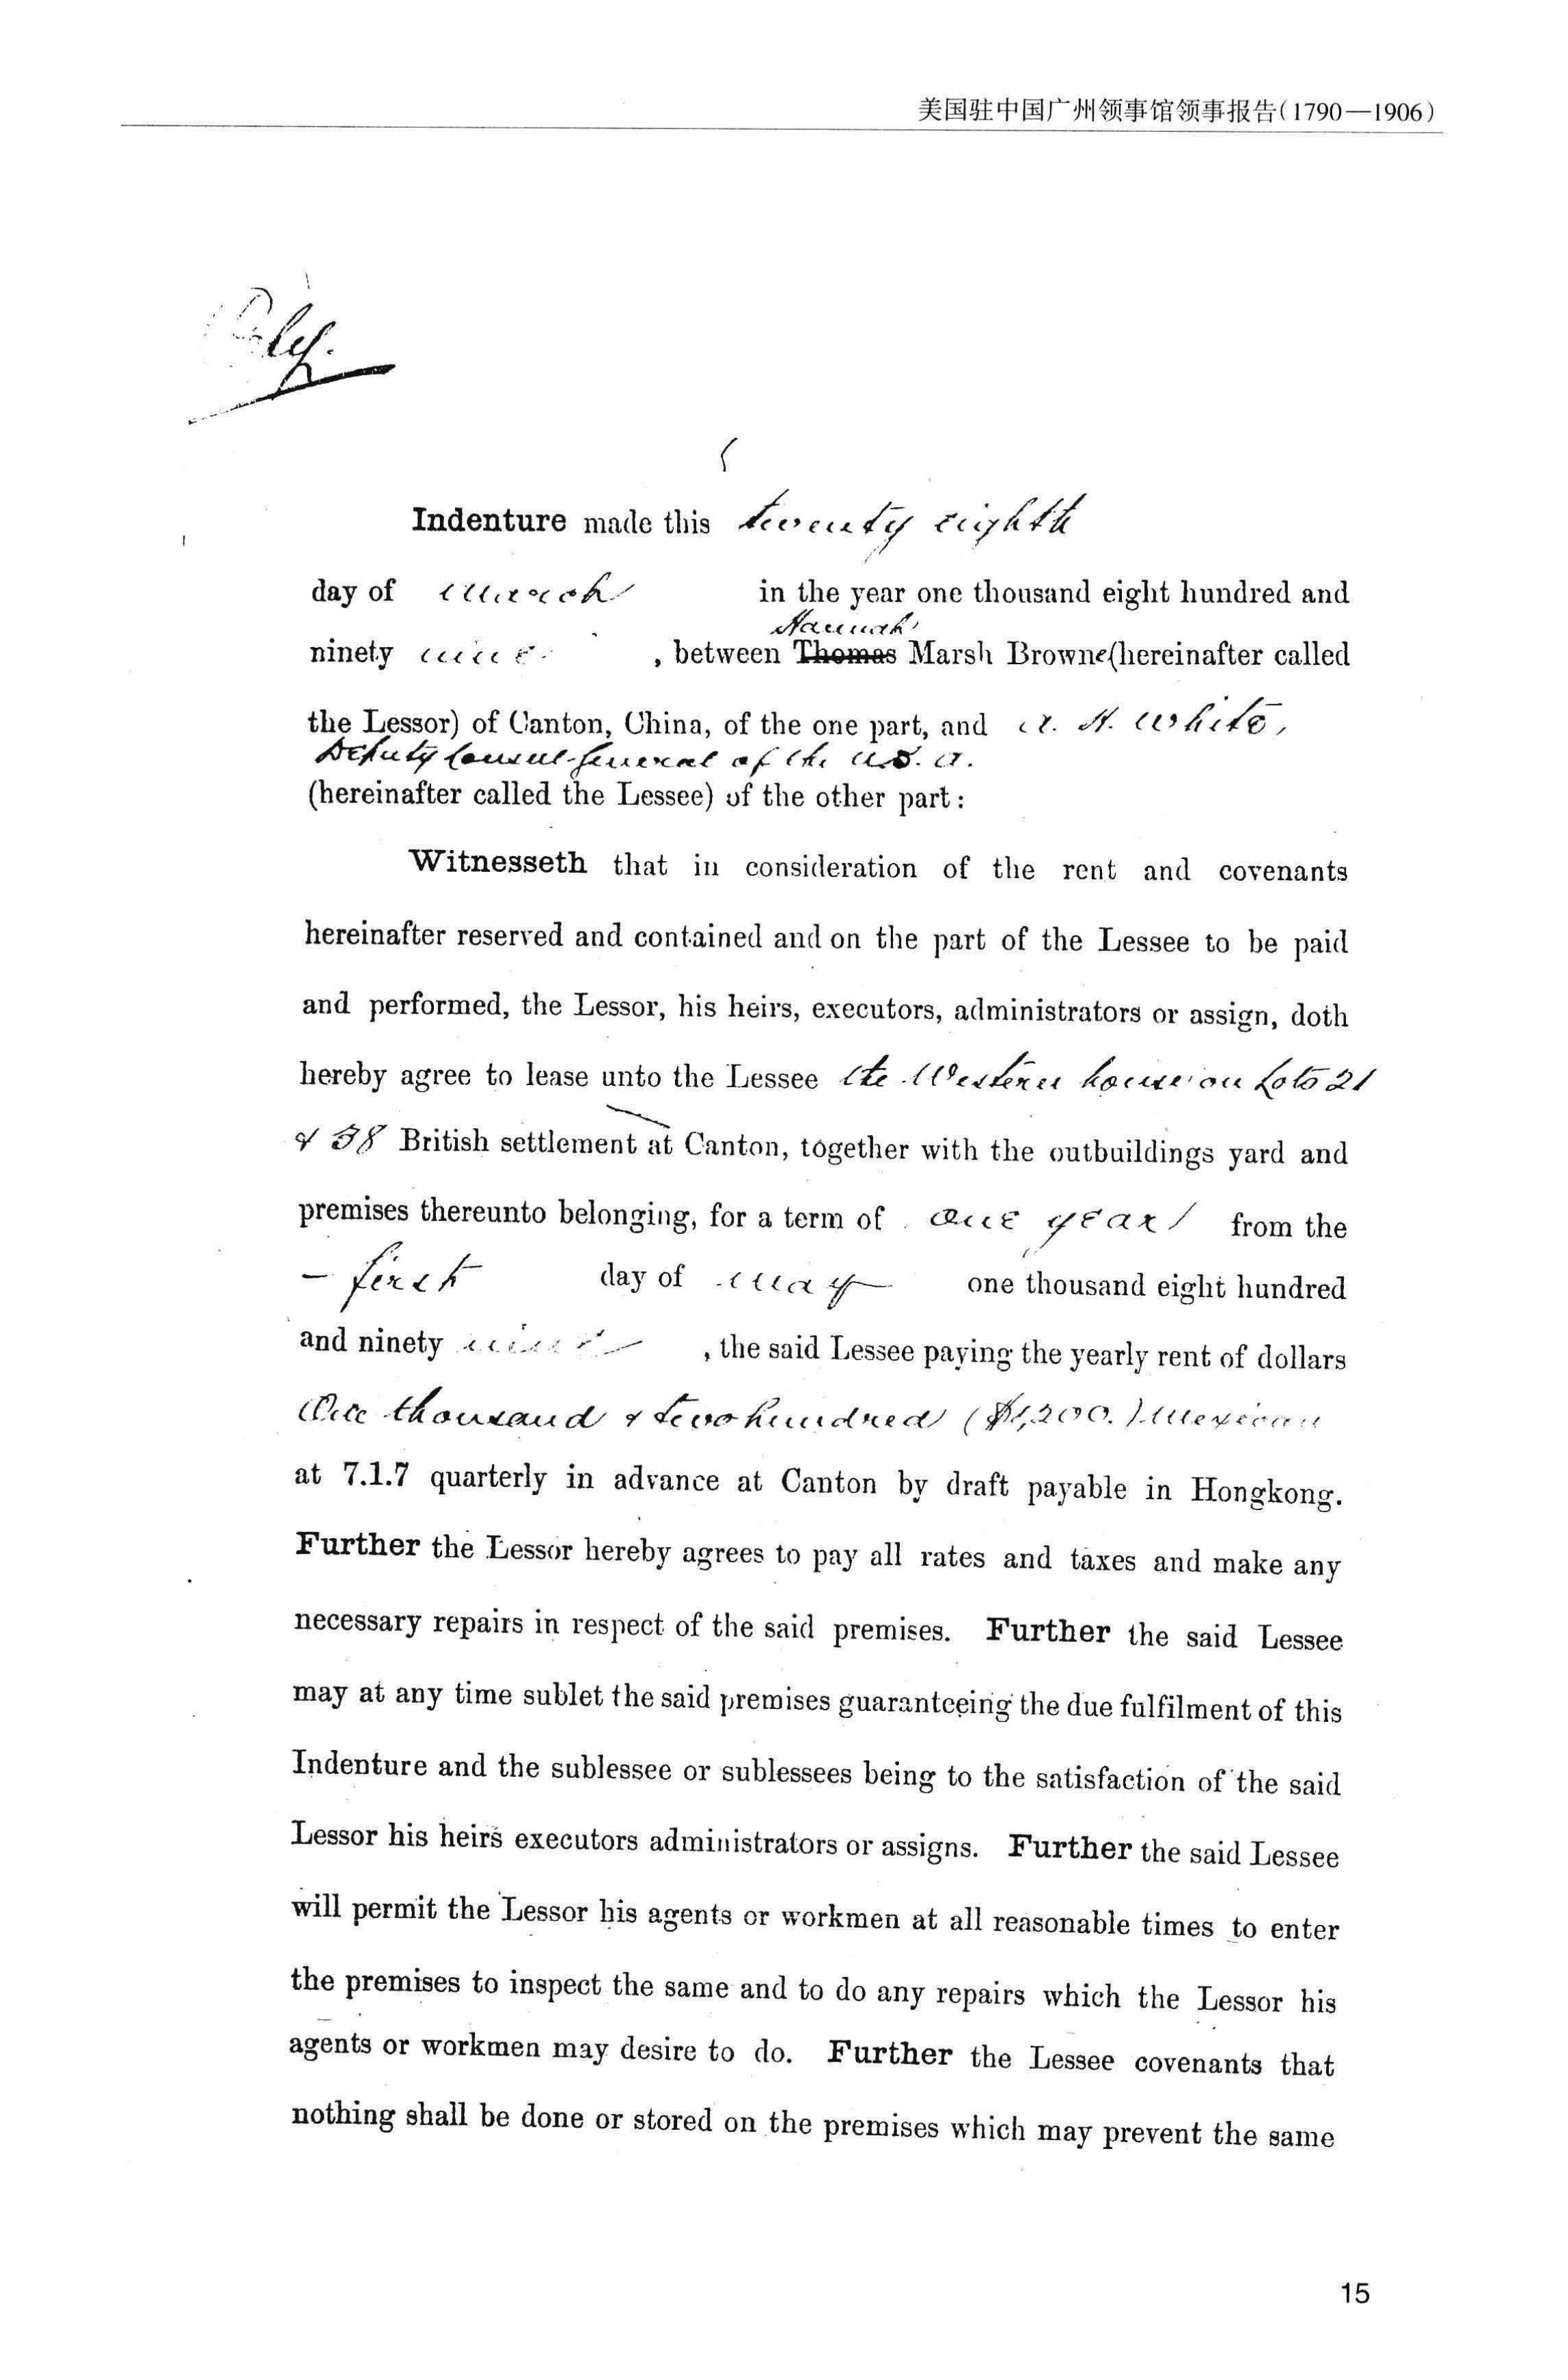 美国驻中国广州领事馆领事报告(1790—1906)
Copy.
Indenture made this twenty eighth
day of March in the year one thousand eight hundred and
Hannah
ninety nine , between Thomas Marsh Browne(hereinafter called
the Lessor) of Canton, China, of the one part, and A. H. White,
Deputy Consul-General of the U.S.A.
(hereinafter called the Lessee) of the other part:
Witnesseth that in consideration of the rent and covenants
hereinafter reserved and contained and on the part of the Lessee to be paid
and performed, the Lessor, his heirs, executors, administrators or assign, doth
hereby agree to lease unto the Lessee the Western house on Lots 21
& 38 British settlement at Canton, together with the outbuildings yard and
premises thereunto belonging, for a term of one year from the
– first day of May one thousand eight hundred
and ninety nine , the said Lessee paying the yearly rent of dollars
One thousand & two hundred ($1,200.) Mexican
at 7.1.7 quarterly in advance at Canton by draft payable in Hongkong.
Further the Lessor hereby agrees to pay all rates and taxes and make any
necessary repairs in respect of the said premises. Further the said Lessee
may at any time sublet the said premises guaranteeing the due fulfilment of this
Indenture and the sublessee or sublessees being to the satisfaction of the said
Lessor his heirs executors administrators or assigns. Further the said Lessee
will permit the Lessor his agents or workmen at all reasonable times to enter
the premises to inspect the same and to do any repairs which the Lessor his
agents or workmen may desire to do. Further the Lessee covenants that
nothing shall be done or stored on the premises which may prevent the same
15